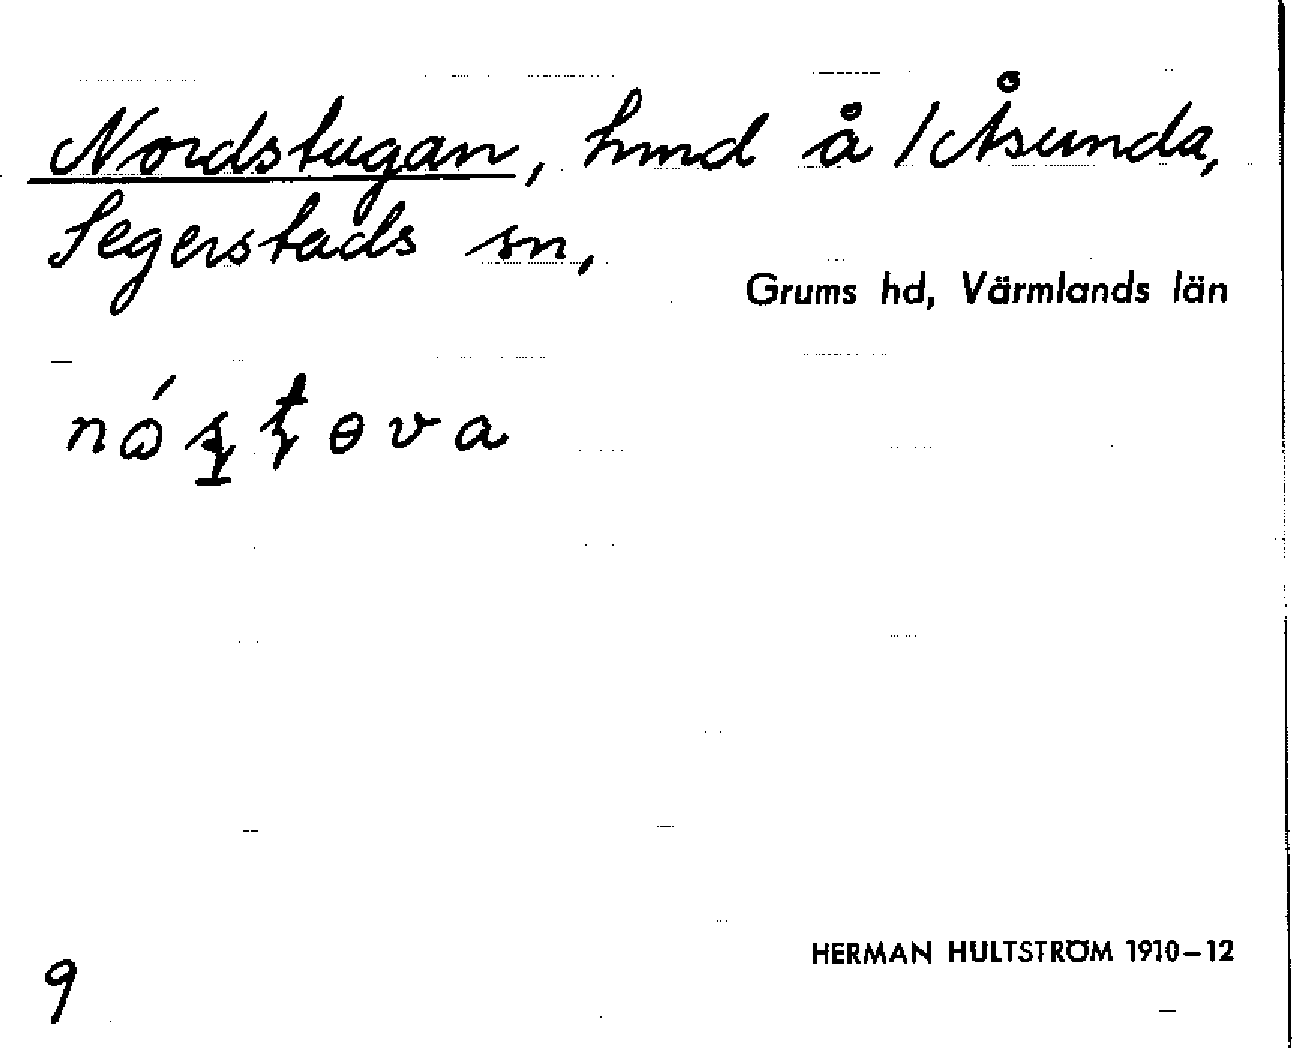 Nordstugan, hmd å /Åsunda,
Segerstads sn,
Grums hd, Värmlands län
9
HERMAN HULTSTRÖM 1910–12